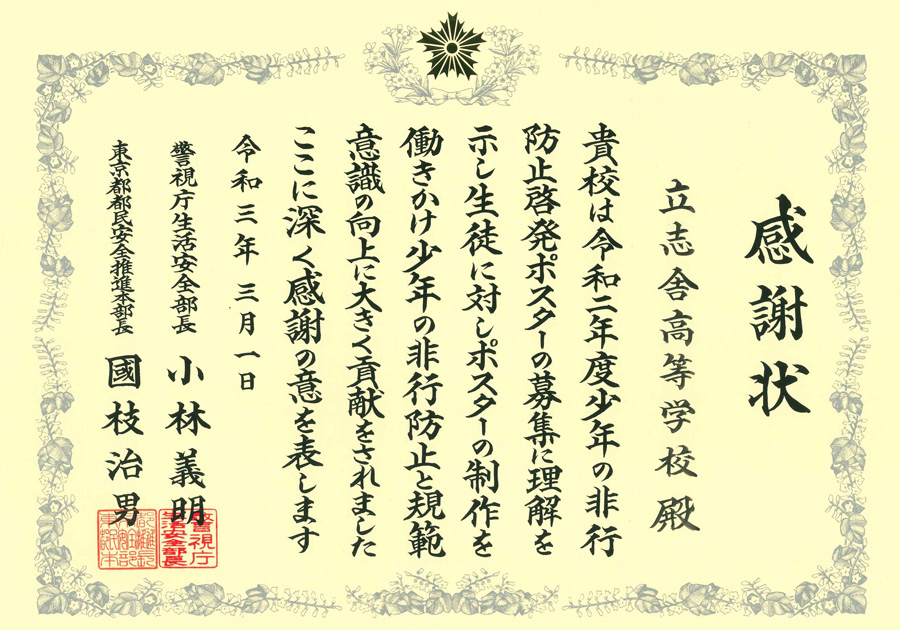 感謝状
立志舎高等学校殿
貴校は令和二年度少年の非行
防止啓発ポスターの募集に理解を
示し生徒に対しポスターの制作を
働きかけ少年の非行防止と規範
意識の向上に大きく貢献をされました
ここに深く感謝の意を表します
令和三年三月一日
警視庁生活安全部長 小林義明
警視庁
生活安全部長
東京都都民安全推進本部長 國枝治男